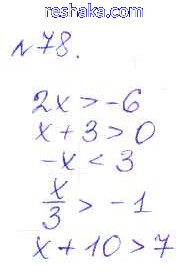 reshaka.com
№78.
2x > -6
x + 3 > 0
-x < 3
x/3 > -1
x + 10 > 7